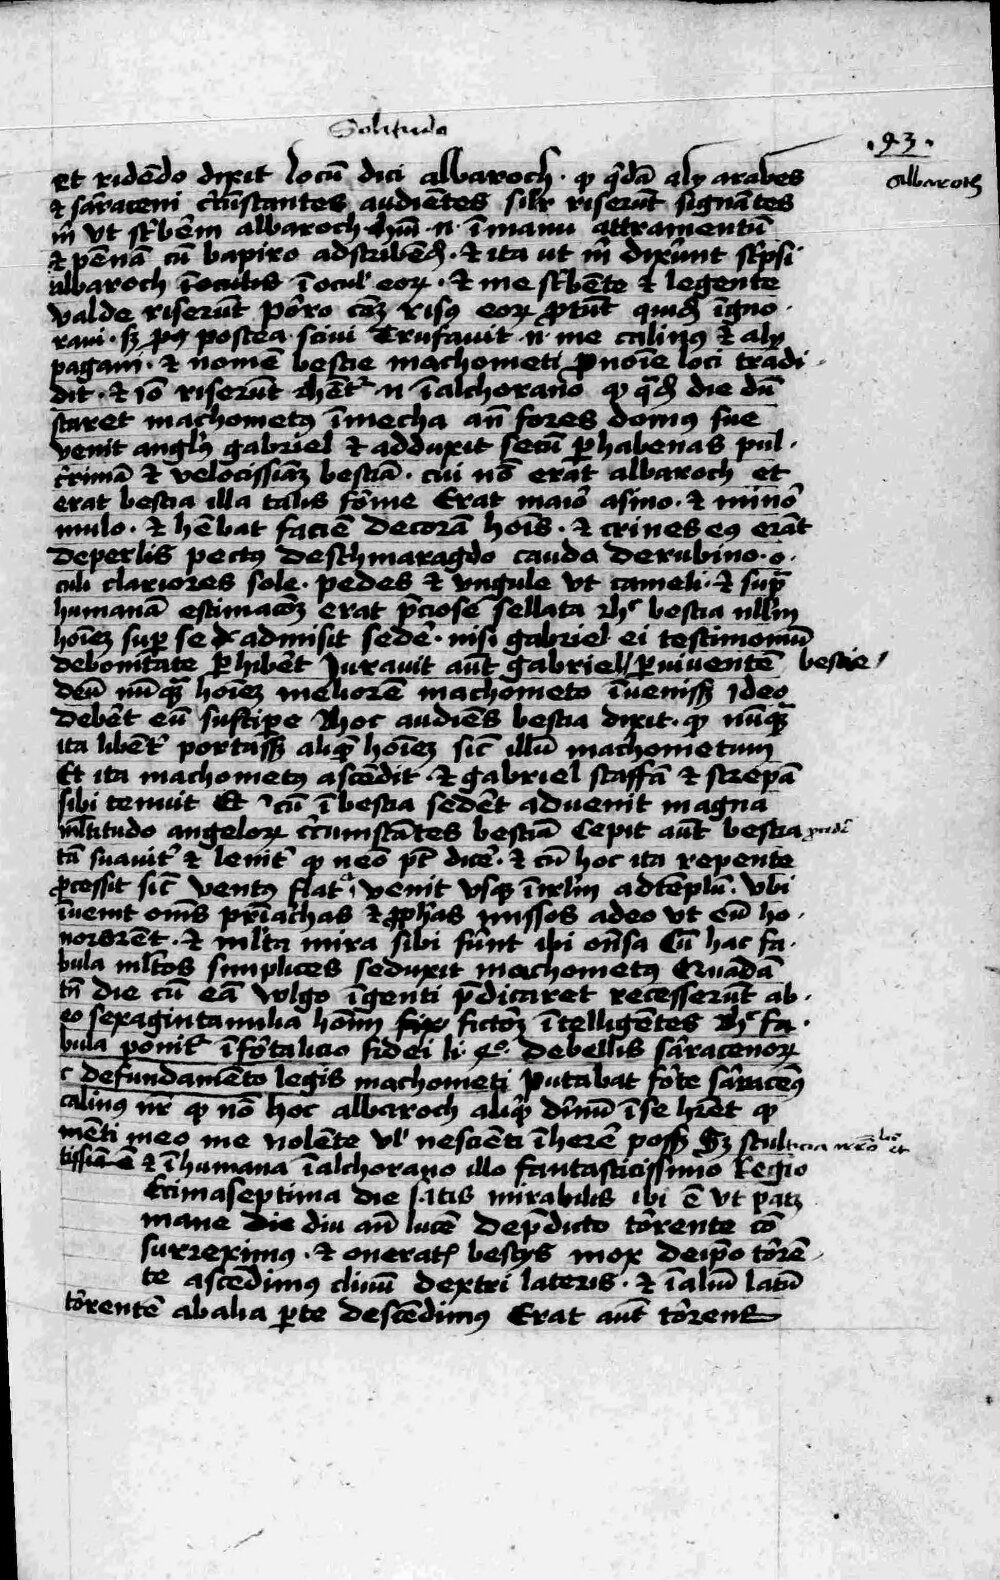 Solitudo
.93.
et ridēdo dixit locū dici albaroch · qͥ q̄dā aly arabes
Albaroth
& sarraceni circūstantes audiētes silr riserūt signātes
m̄ vt scͥbēm albaroch hūi n̄ ī manu attramentū
& pēnā cū bapiro adscribēd · & ita ut m̄ dixerūnt scͥpsi
albaroch ī oculis ī ocul' eoꝝ · & me scͥbēte & legente
valde riserūt porro cāꝫ risꝯ eoꝝ ꝓtūt quid īgno·
raui · sꝫ pꝯ postea sciui Trufauit · n̄ · me calinꝯ & aly
pagani · & nomē bestie machometi ꝓ noīe loci tradi·
dit · & iō riserūt hētr n̄ ī alchorano qͥ qͣd die dū
staret machometꝯ ī mecha an̄ fores domꝯ sue
venit anglꝯ gabriel & adduxit secū ꝑ habenas pul·
crimā & velocissimā bestiā · cui nō erat albaroch et
erat bestia illa talis forme Erat maior asino · & minor
mulo · & hēbat faciē decorā hoīs · & crines eꝯ erāt
de perlis pectꝯ de schmaragdo cauda de rubino · o·
culi clariores sole · pedes & vngule vt cameli · & supͣ
humanā estimacōꝫ erat p̄ciose sellata hͨ bestia nllm
hoīeꝫ suꝑ se admisit sedē · nisi gabriel ei testimoniū
de bonitate ꝑhibēt Jurauit aūt gabriel ꝑ viuentē bestie
deū nūqͣ hoīeꝫ meliorē machometo īuenissꝫ ideo
debēt eū suscipe Hoc audiēs bestia dixit · qͥ nūqͣ
ita libēt portassꝫ aliqͤ hoīeꝫ sic illū machometum
Et ita machometꝯ ascēdit · & gabriel staffā & strepā
sibi tenuit Et cū ī bestia sedēt aduenit magna
mltitudo angeloꝝ circumstātes bestiā Cepit aūt bestia
tā suauit & lenit qͥ neō pt dicē · & cū hoc ita repente
ꝓcessit sic ventꝯ flat venit vsqꝫ ī irlm ad tēplū · vbi
īuenit om̄s pr̄iachas & ꝓphas missos adeo vt eū ho·
norarēt · & mlta mira sibi fūnt ibi on̄sa Cū hac fa·
bula mltos simplices seduxit machometꝯ Quadā
tn̄ die cū eā vulgo īgenti p̄dicaret recesserūt ab·
eo sexagintamilia hoīm fictōꝫ ītelligētes Hͨ fa·
bula ponit ī fortalicio fidei li · 4º · de bellis sarracenoꝝ
c de fundamēto legis machometi Putabat forte sarracenꝯ
calinꝯ nr̄ qͥ nō hoc albaroch aliqͥ dīnū ī se hr̄et qͥ
mēti meo me nolēte vl' nesciēti īherē possꝫ Sꝫ stulticia
tissīa ē & īhumana ī alchorano illo fantasticissimo Regio
Ecimaseptima die satis mirabilis ibi ē vt patꝫ
mane die diu an̄ lucē de p̄dicto tōrente cō
surreximꝯ · & onerat bestys mox de ip̄o tōrē
te ascēdimꝯ cliuū dextri lateris · & ī aliū latū
tōrentē ab alia ꝑte descēdimꝯ Erat aūt tōrens